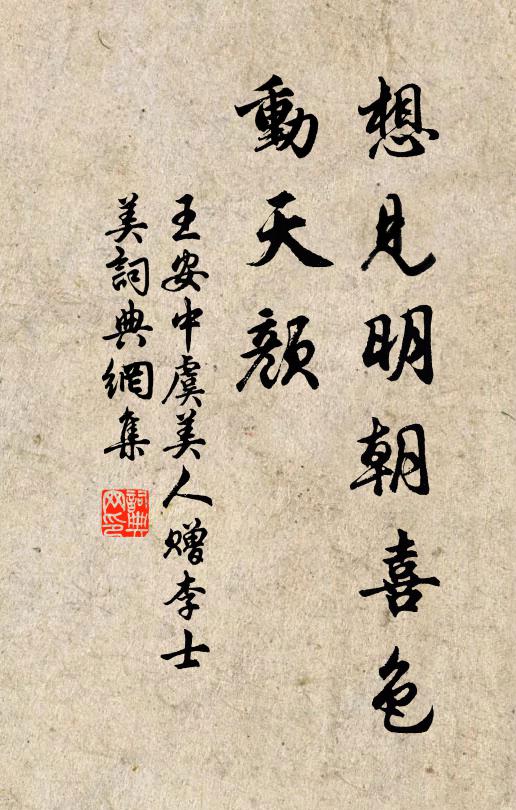 想見明朝喜色
動天顏
王安中虞美人贈李士
美詞典網集
詞典
网印